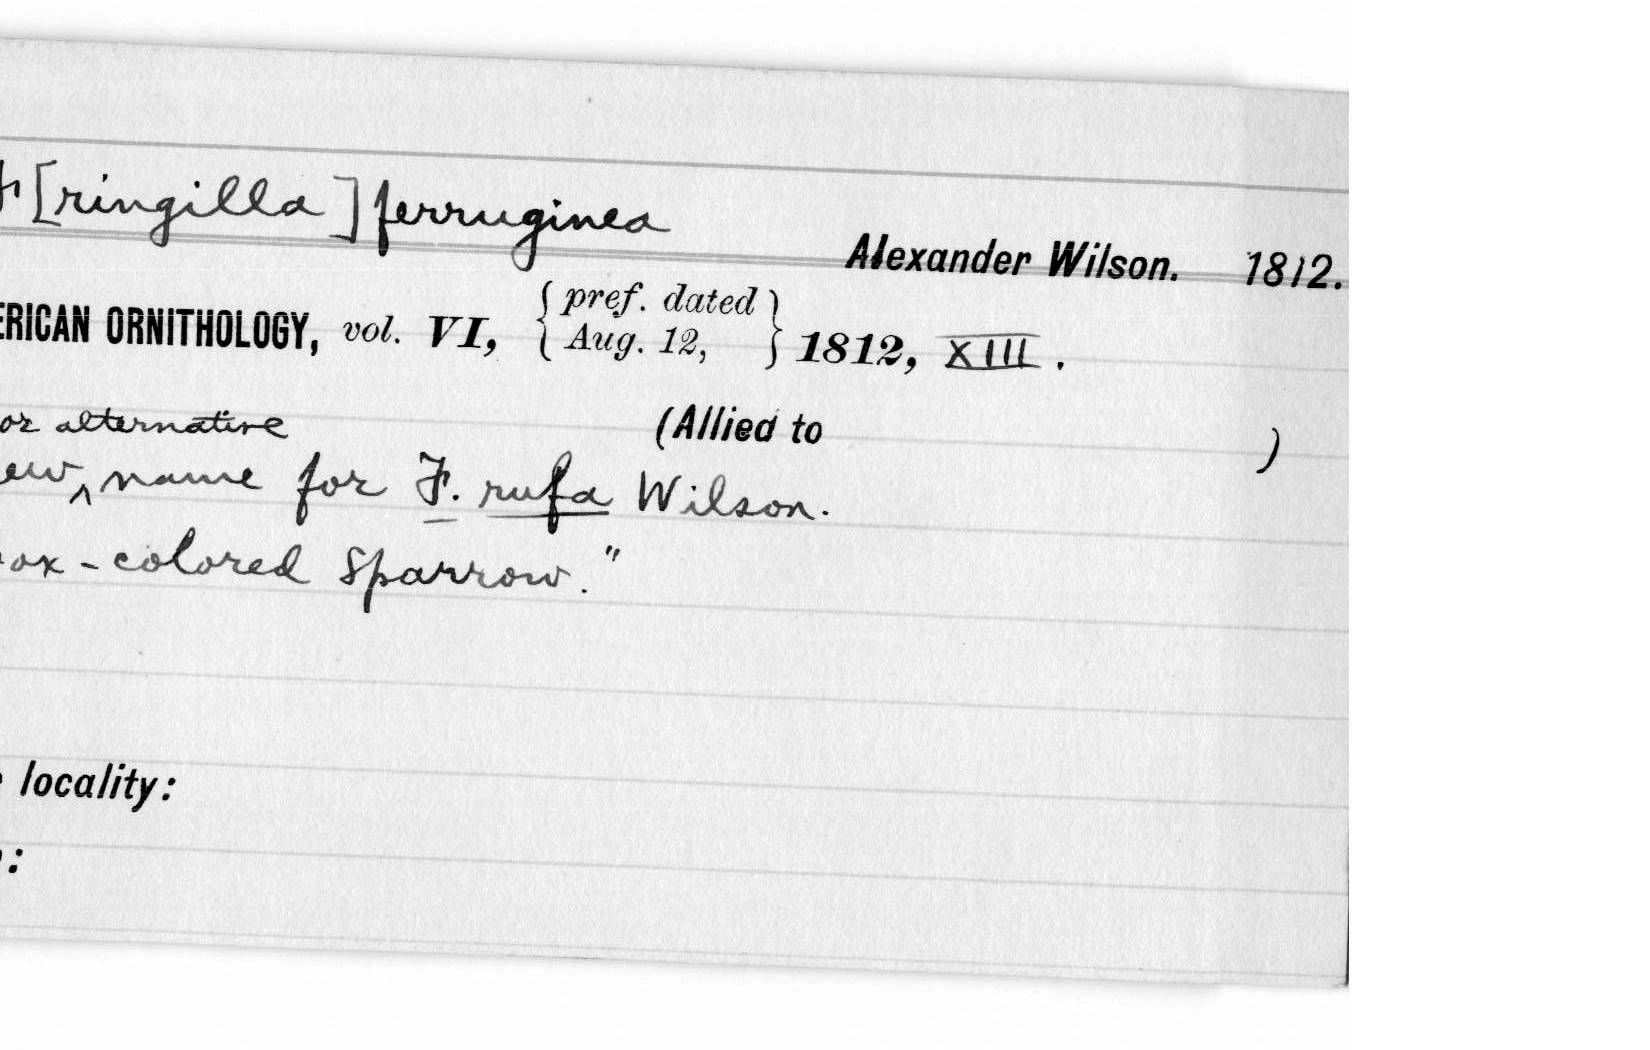 F[ringilla] ferruginea
Alexander Wilson. 1812.
ERICAN ORNITHOLOGY, vol. VI, { pref. dated Aug. 12, } 1812, XIII.
or alternative
(Allied to )
ew ^ name for F. rufa Wilson.
ox-colored Sparrow."
locality:
: